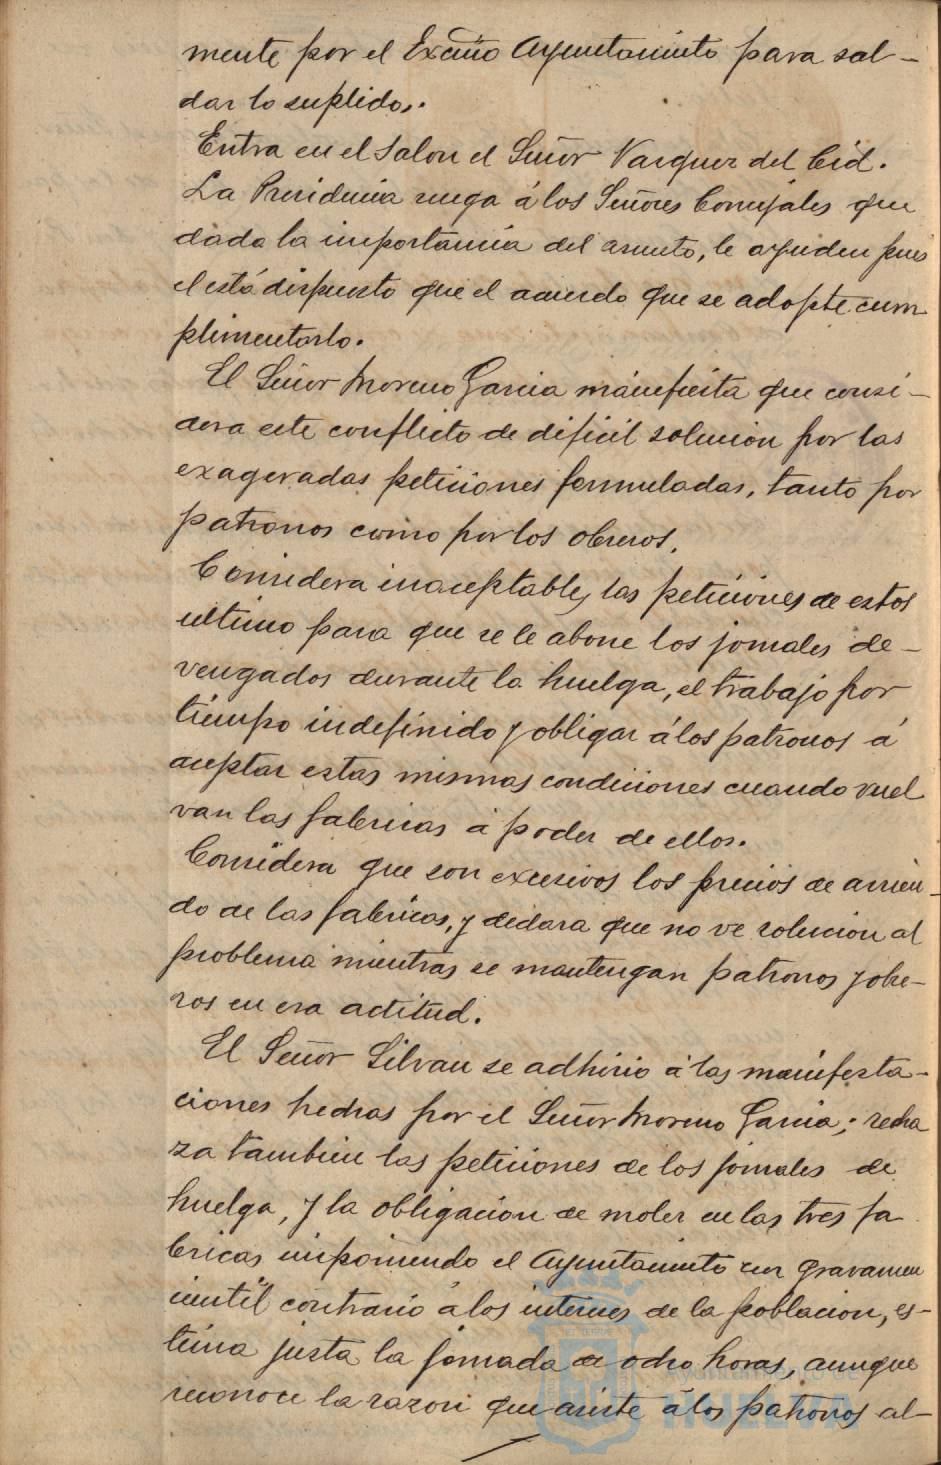 mente por el Excmo Ayuntamiento para sal-
dar lo suplido.
Entra en el Salon el Señor Vazquez del Cid.
La Presidencia ruega á los Señores Concejales que
dada la importancia del asunto, le ayuden pues
el está dispuesto que el acuerdo que se adopte cum
plimentarlo.
El Señor Moreno Garcia manifiesta que consi-
dera este conflicto de dificil solucion por las
exageradas peticiones formuladas, tanto por
patronos como por los obreros.
Considera inaceptables las peticiones de estos
ultimo para que se le abone los jornales de-
vengados durante la huelga, el trabajo por
tiempo indefinido y obligar á los patronos á
aceptar estas mismas condiciones cuando vuel
van las fabricas á poder de ellos.
Considera que son excesivos los precios de arrien-
do de las fabricas, y declara que no ve solucion al
problema mientras se mantengan patronos y obre-
ros en esa actitud.
El Señor Silvan se adhirio á las manifesta-
ciones hechas por el Señor Moreno Garcia; recha
za tambien las peticiones de los jornales de
huelga, y la obligacion de moler en las tres fa
bricas imponiendo el Ayuntamiento un gravamen
inutil contrario á los intereses de la poblacion, es-
tima justa la jornada de ocho horas, aunque
reconoce la razon que asiste á los patronos al-
Ayuntamiento de
HUELVA